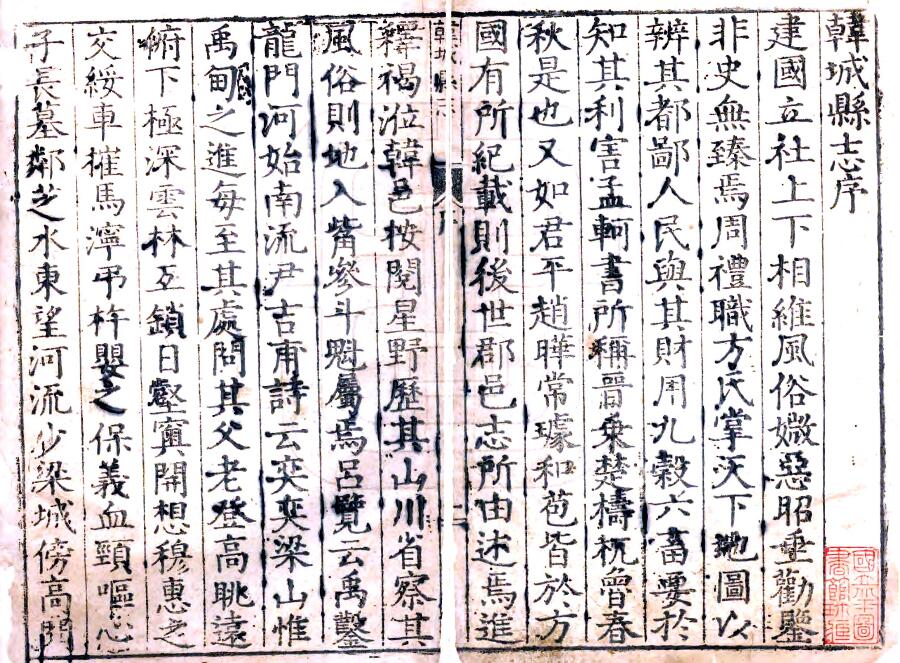 韓城縣志序
建國立社上下相維風俗媺惡昭垂勸鑒
非史無臻焉周禮職方氏掌天下地圖以
辨其都鄙人民與其財用九穀六畜要於
知其利害孟軻書所稱晉乗楚檮杌魯春
秋是也又如君平趙曄常璩和苞皆於方
國有所紀載則後世郡邑志所由述焉進
韓城縣志
序
一
釋褐涖韓邑按閱星野歷其山川省察其
風俗則地入觜參斗魁屬焉呂覽云禹鑿
龍門河始南流尹吉甫詩云奕奕梁山惟
禹甸之進每至其處問其父老登高眺遠
俯下極深雲林互鎖日壑寅開想穆惠之
交綏車摧馬濘弔杵嬰之保義血頸嘔心
子長墓鄰芝水東望河流少梁城傍高門
國立圖
書館